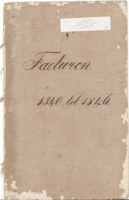 Facturen
1840 tot 1846.